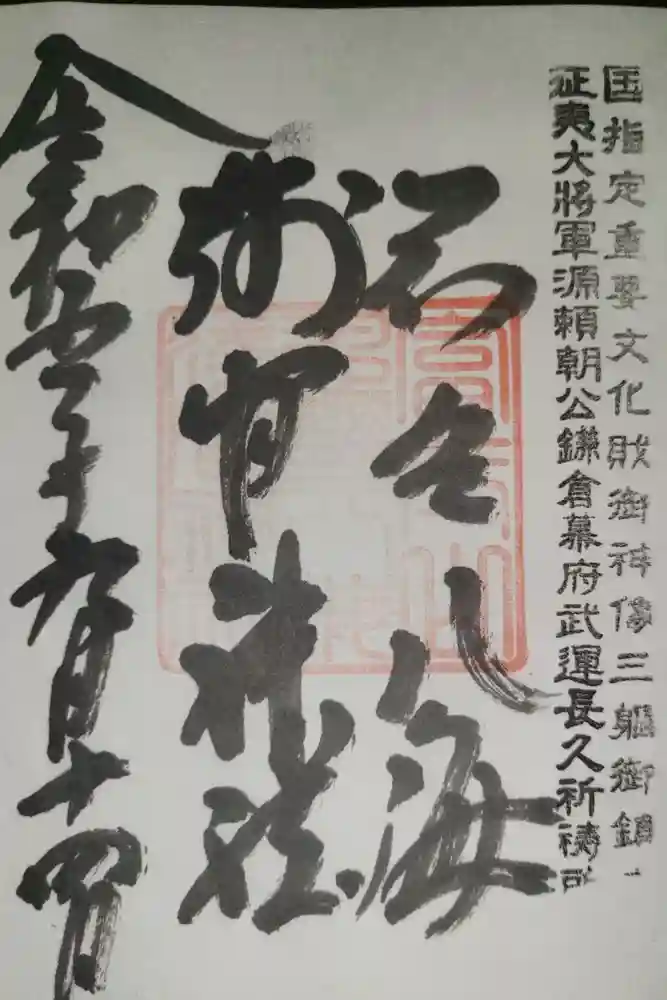 国指定重要文化財御神像三軀御鎮
征夷大將軍源頼朝公鎌倉幕府武運長久祈祷所
忍野八海
浅間神社
令和年九月十四日